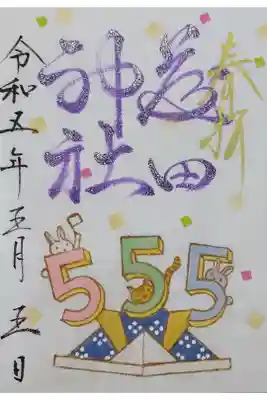 奉拝
神社
令和五年五月五日
555